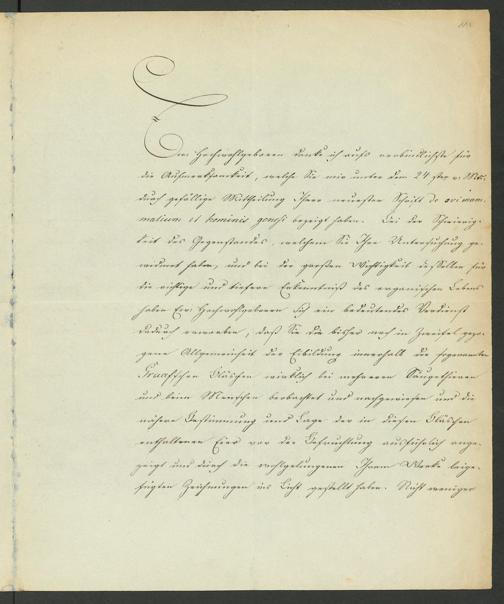 Ew. Hochwohlgeboren danke ich aufs verbindlichste für
die Aufmerksamkeit, welche Sie mir unter dem 24 v. Mts.
durch gefällige Mittheilung Ihrer neuesten Schrift de ovi mam-
malium et hominis genesi bezeigt haben. Bei der Schwierig-
keit des Gegenstandes, welchem Sie Ihre Untersuchung ge-
widmet haben, und bei der großen Wichtigkeit desselben für
die richtige und tiefere Erkenntniß des organischen Lebens
haben Ew. Hochwohlgeboren sich ein bedeutendes Verdienst
dadurch erworben, daß Sie die bisher noch in Zweifel gezo-
gene Allgemeinheit der Eibildung innerhalb der sogenannten
Graafschen Bläschen wirklich bei mehreren Säugethieren
und beim Menschen beobachtet und nachgewiesen und die
nähere Bestimmung und Lage der in diesen Bläschen
enthaltenen Eier vor der Befruchtung ausführlich ange-
zeigt und durch die wohlgelungenen Ihrem Werke beige-
fügten Zeichnungen ins Licht gestellt haben. Nicht weniger